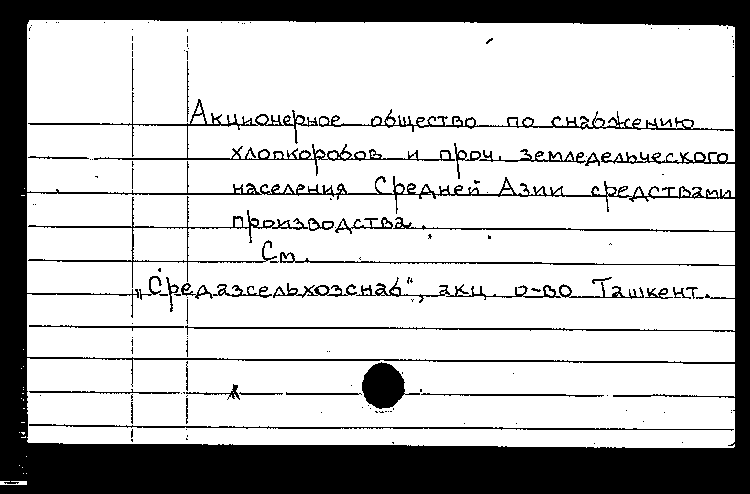 Акционерное общество по снабжению
хлопкоробов и проч. земледельческого
населения Средней Азии средствами
производства.
См.
„Средазсельхозснаб“, акц. о-во Ташкент.